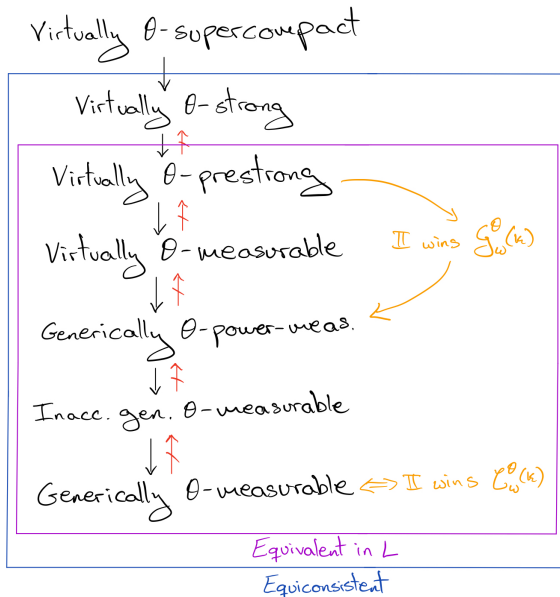 Virtually θ-supercompact
Virtually θ-strong
Virtually θ-prestrong
II wins 𝒢_ω^θ(κ)
Virtually θ-measurable
Generically θ-power-meas.
Inacc. gen. θ-measurable
Generically θ-measurable ⇔ II wins 𝒞_ω^θ(κ)
Equivalent in L
Equiconsistent